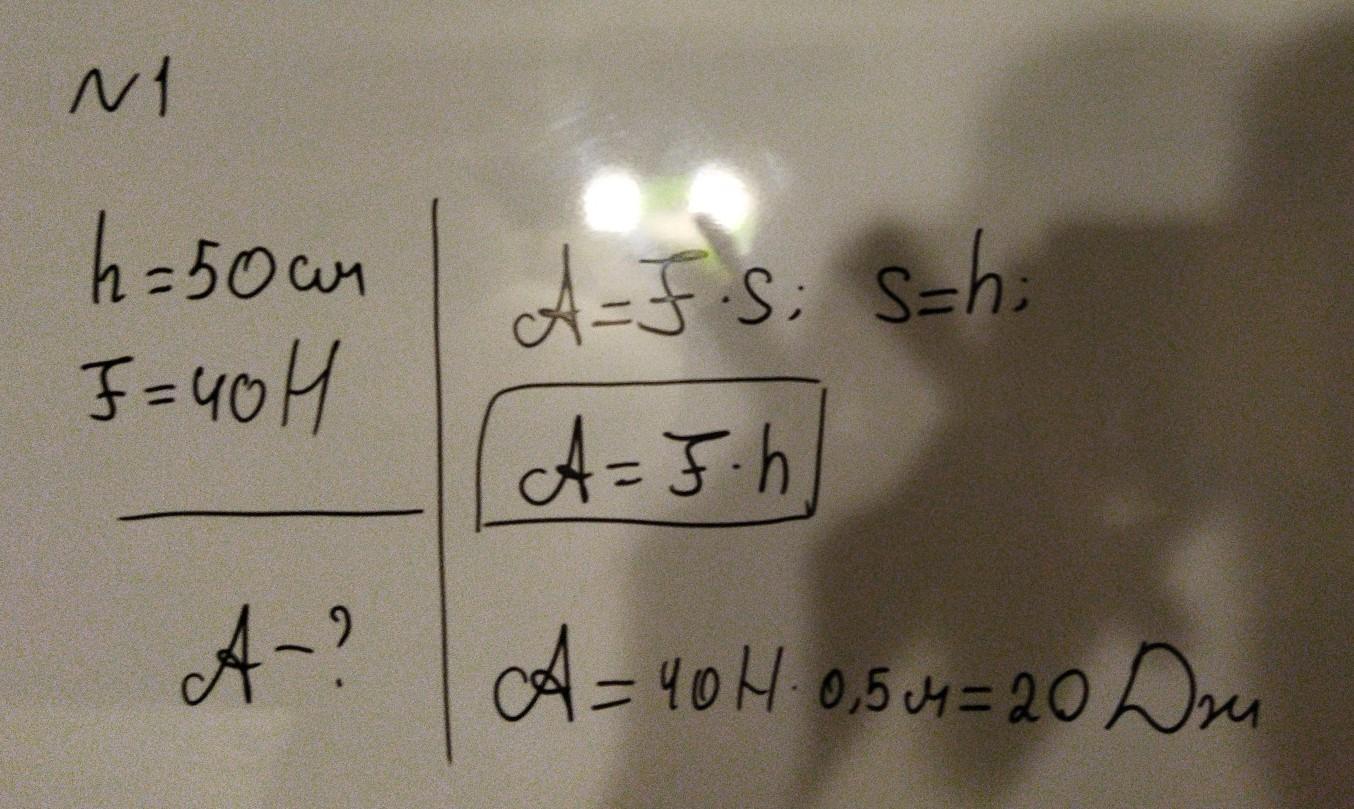 N1
h = 50 см
F = 40 Н
A - ?
A = F · S; S = h;
A = F · h
A = 40 Н · 0,5 м = 20 Дж